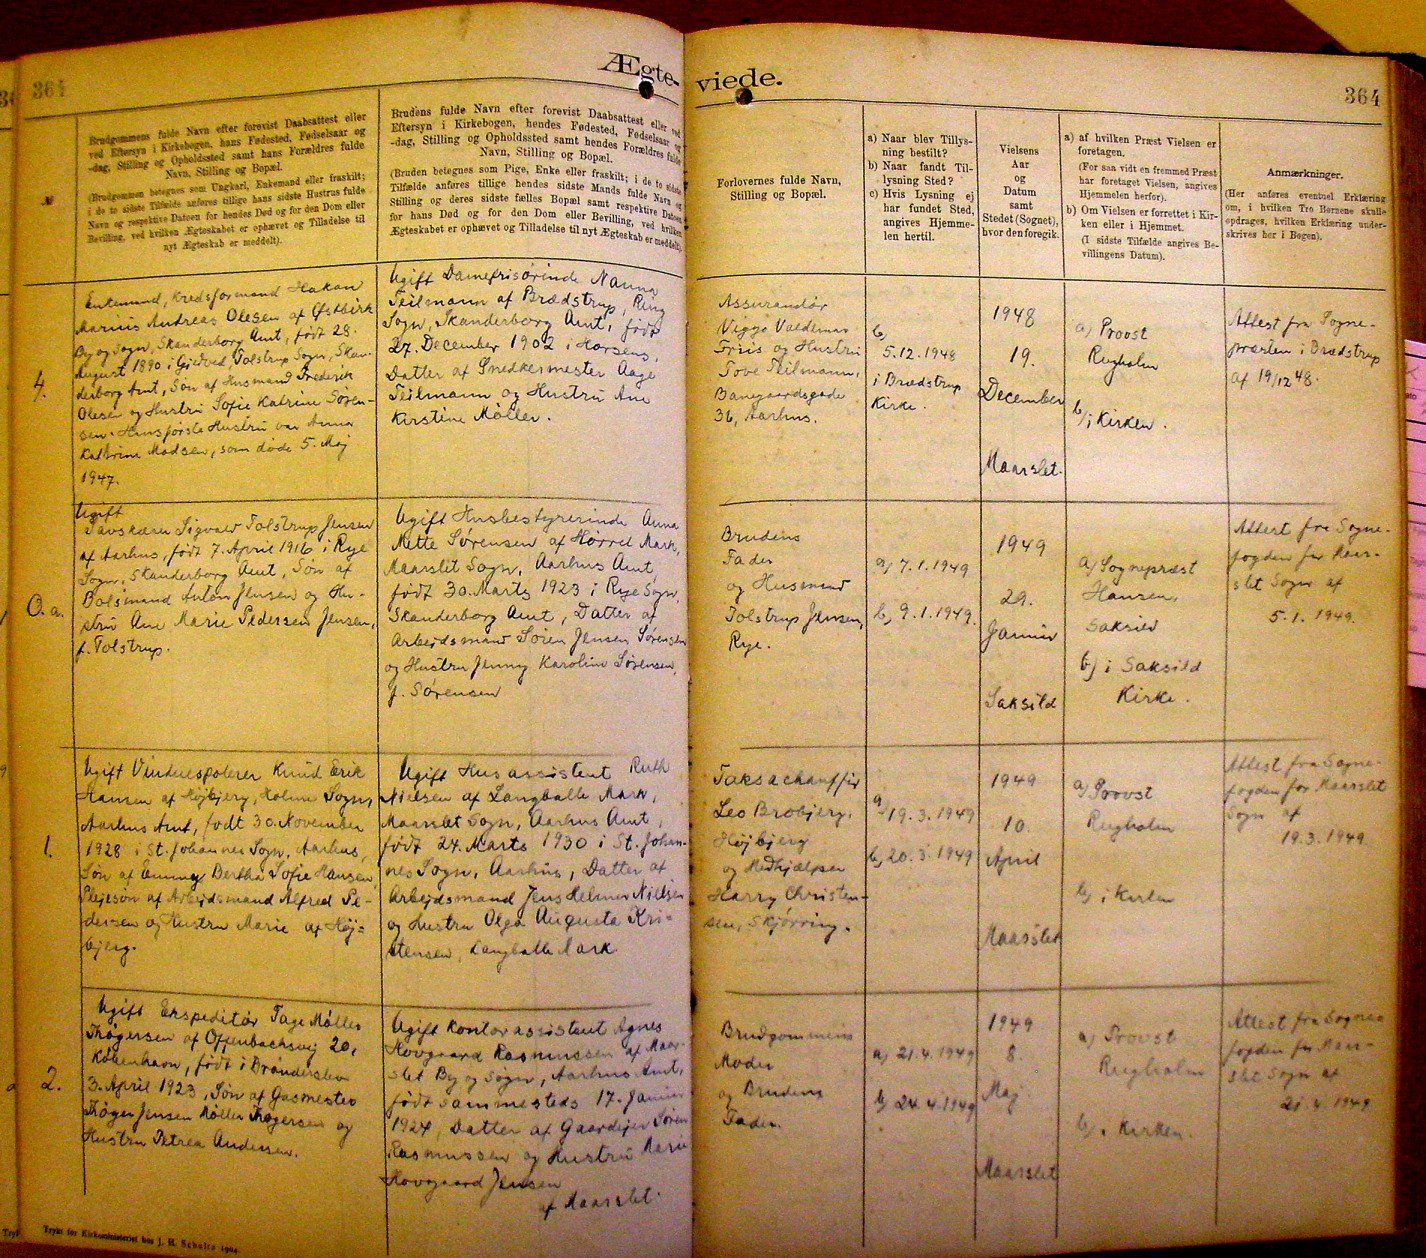 364
Ægte-
viede.
364
Brudgommens fulde Navn efter forevist Daabsattest eller
ved Eftersyn i Kirkebogen, hans Fødested, Fødselsaar og
-dag, Stilling og Opholdssted samt hans Forældres fulde
Navn, Stilling og Bopæl.
(Brudgommen betegnes som Ungkarl, Enkemand eller fraskilt;
i de to sidste Tilfælde anføres tillige hans sidste Hustrus fulde
Navn og respektive Datoen for hendes Død og for den Dom eller
Bevilling, ved hvilken Ægteskabet er ophævet og Tilladelse til
nyt Ægteskab er meddelt).
Brudens fulde Navn efter forevist Daabsattest eller ved
Eftersyn i Kirkebogen, hendes Fødested, Fødselsaar og
-dag, Stilling og Opholdssted samt hendes Forældres fulde
Navn, Stilling og Bopæl.
(Bruden betegnes som Pige, Enke eller fraskilt; i de to sidste
Tilfælde anføres tillige hendes sidste Mands fulde Navn og
Stilling og deres sidste fælles Bopæl samt respektive Datoen
for hans Død og for den Dom eller Bevilling, ved hvilken
Ægteskabet er ophævet og Tilladelse til nyt Ægteskab er meddelt).
Forlovernes fulde Navn,
Stilling og Bopæl.
a) Naar blev Tillys-
ning bestilt?
b) Naar fandt Til-
lysning Sted?
c) Hvis Lysning ej
har fundet Sted,
angives Hjemme-
len hertil.
Vielsens
Aar
og
Datum
samt
Stedet (Sognet),
hvor den foregik.
a) af hvilken Præst Vielsen er
foretagen.
(For saa vidt en fremmed Præst
har foretaget Vielsen, angives
Hjemmelen herfor).
b) Om Vielsen er forrettet i Kir-
ken eller i Hjemmet.
(I sidste Tilfælde angives Be-
villingens Datum).
Anmærkninger.
(Her anføres eventuel Erklæring
om, i hvilken Tro Børnene skulle
opdrages, hvilken Erklæring under-
skrives her i Bogen).
4.
Enkemand, Kredsformand Hakan
Marius Andreas Olesen af Østbirk
By og Sogn, Skanderborg Amt, født 28.
August 1890 i Gjedved, Tolstrup Sogn, Skan-
derborg Amt, Søn af Husmand Frederik
Olesen og Hustru Sofie Katrine Søren-
sen. Hans første Hustru var Anna
Kathrine Madsen, som døde 5. Maj
1947.
Ugift Damefrisørinde Nanna
Teilmann af Brædstrup, Ring
Sogn, Skanderborg Amt, født
27. December 1902 i Horsens,
Datter af Snedkermester Aage
Teilmann og Hustru Ane
Kirstine Møller.
Assurandør
Viggo Valdemar
Friis og Hustru
Tove Teilmann,
Banegaardsgade
36, Aarhus.
b)
5.12.1948
i Brædstrup
Kirke.
1948
19.
December
Maarslet.
a) Provst
Rugholm
b) i Kirken.
Attest fra Sogne-
præsten i Brædstrup
af 19/12 48.
O.a.
Ugift
Tavskærer Sigvald Tolstrup Jensen
af Aarhus, født 7. April 1916 i Rye
Sogn, Skanderborg Amt, Søn af
Bolsmand Anton Jensen og Hu-
stru Ane Marie Pedersen Jensen,
f. Tolstrup.
Ugift Husbestyrerinde Anna
Mette Sørensen af Hørret Mark,
Maarslet Sogn, Aarhus Amt,
født 30. Marts 1923 i Rye Sogn,
Skanderborg Amt, Datter af
Arbejdsmand Søren Jensen Sørensen
og Hustru Jenny Karoline Sørensen,
f. Sørensen
Brudens
Fader
og Husmand
Tolstrup Jensen,
Rye.
a) 7.1.1949
b) 9.1.1949.
1949
29.
Januar
Saksild
a) Sognepræst
Hansen,
Saksild
b) i Saksild
Kirke.
Attest fra Sogne-
fogden for Maar-
slet Sogn af
5.1.1949.
1.
Ugift Vinduespolerer Knud Erik
Hansen af Højbjerg, Holme Sogn,
Aarhus Amt, født 30. November
1928 i St. Johannes Sogn, Aarhus,
Søn af Emmy Bertha Sofie Hansen,
Plejesøn af Arbejdsmand Alfred Pe-
dersen og Hustru Marie af Høj-
bjerg.
Ugift Husassistent Ruth
Nielsen af Langballe Mark,
Maarslet Sogn, Aarhus Amt,
født 24. Marts 1930 i St. Johan-
nes Sogn, Aarhus, Datter af
Arbejdsmand Jens Helmer Nielsen
og Hustru Olga Augusta Kri-
stensen, Langballe Mark
Taksachauffør
Leo Brobjerg,
Højbjerg
og Medhjælper
Harry Christen-
sen, Skjørring.
a) 19.3.1949
b) 20.3.1949
1949
10.
April
Maarslet
a) Provst
Rugholm
b) i Kirken
Attest fra Sogne-
fogden for Maarslet
Sogn af
19.3.1949
2.
Ugift Ekspeditør Tage Møller
Thøgersen af Offenbachsvej 20,
København, født i Brønderslev
3. April 1923, Søn af Gasmester
Thøger Jensen Møller Thøgersen og
Hustru Petrea Andersen.
Ugift Kontorassistent Agnes
Hovgaard Rasmussen af Maar-
slet By og Sogn, Aarhus Amt,
født sammesteds 17. Januar
1924, Datter af Gaardejer Søren
Rasmussen og Hustru Marie
Hovgaard Jensen
af Maarslet.
Brudgommens
Moder
og Brudens
Fader.
a) 21.4.1949
b) 24.4.1949
1949
8.
Maj
Maarslet
a) Provst
Rugholm
b) i Kirken.
Attest fra Sogne-
fogden for Maar-
slet Sogn af
21.4.1949
Trykt for Kirkeministeriet hos J. H. Schultz 1904.